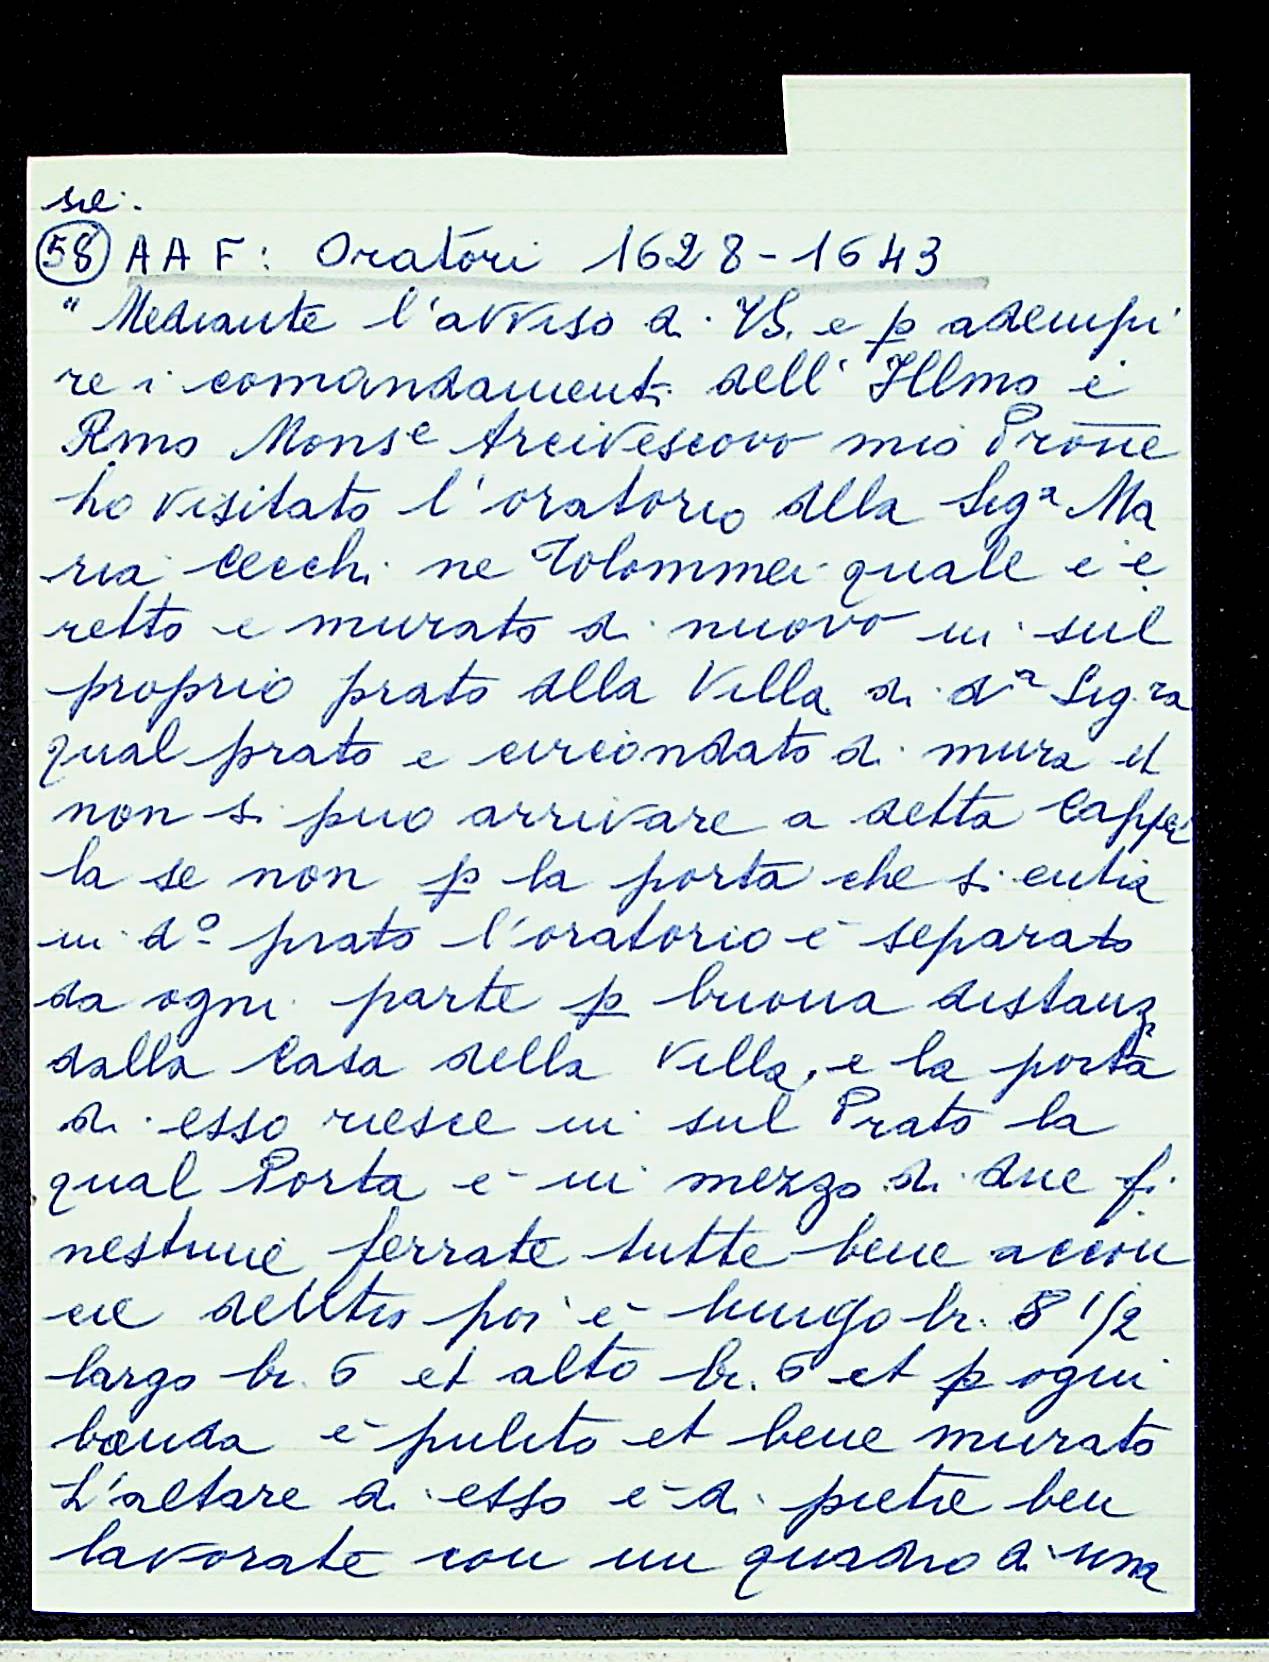 se.
58 AAF: Oratori 1628-1643
"Mediante l'avviso di VS. e p adempi
re i comandamenti dell' Illmo e
Rmo Monse Arcivescovo mio Prone
ho visitato l'oratorio della Siga Ma
ria Cecchi ne Tolommei quale e e
retto e murato di nuovo in sul
proprio prato della Villa di da Sig.ra
qual prato e circondato di mura et
non si puo arrivare a detta Cappel
la se non p la porta che si entra
in do prato l'oratorio è separato
da ogni parte p buona distanza
dalla Casa della Villa, e la porta
di esso riesce in sul Prato la
qual Porta è in mezzo di due fi
nestrine ferrate tutte bene accon
cie dentro poi è lungo br. 8 1/2
largo br. 6 et alto br. 6 et p ogni
banda è pulito et bene murato
L'altare di esso è di pietre ben
lavorate con un quadro di una